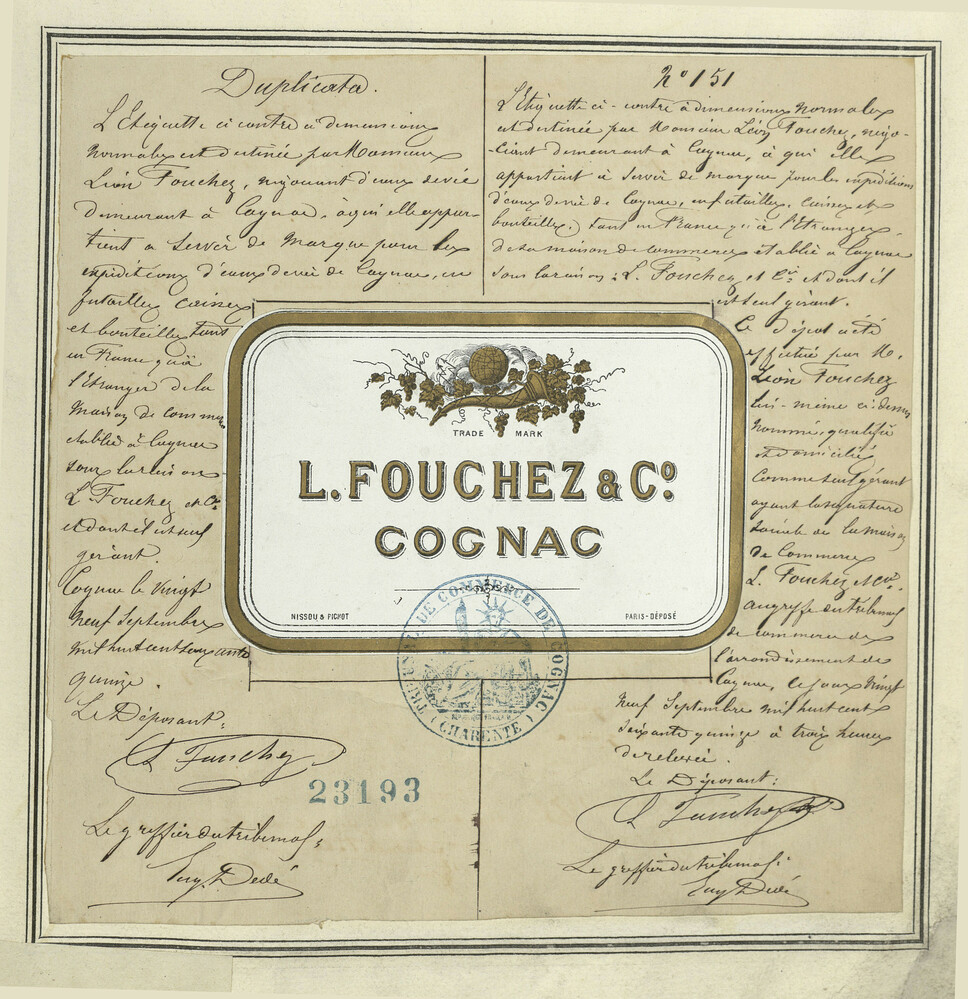 Duplicata.
L'Etiquette ci contre à dimensions
normales est destinée par Monsieur
Léon Fouchez, négociant d'eaux de vie
demeurant à Cognac, à qui elle appar-
tient a servir de marque pour les
expéditions d'eaux de vie de Cognac, en
futailles caisses
et bouteilles tant
en France qu'à
l'Etranger de la
maison de commerce
etablie à Cognac
sous la raison
L. Fouchez et Cie
et dont il est seul
gérant.
Cognac le vingt
neuf Septembre
mil huit cent soixante
quinze.
Le Déposant:
L Fouchez
Le greffier du tribunal:
Eug. Dedé
23193
No 151
L'Etiquette ci-contre à dimensions normales
est destinée par Monsieur Léon Fouchez, négo-
-ciant demeurant à Cognac, à qui elle
appartient à servir de marque pour les expéditions
d'eaux de vie de Cognac, en futailles, caisses et
bouteilles, tant en France qu'à l'Etranger,
de sa maison de commerce établie à Cognac
sous la raison: L. Fouchez et Cie et dont il
est seul gérant.
Ce dépot a été
effectué par M.
Léon Fouchez
lui-même ci-dessus
nommé, qualifié
et domicilié
comme seul gérant
ayant la signature
sociale de la maison
de commerce
L. Fouchez et Cie.
au greffe du tribunal
de commerce de
l'arrondissement de
Cognac, ce jour vingt
neuf Septembre mil huit cent
soixante quinze à trois heures
de relevée.
Le Déposant:
L Fouchez
Le greffier du tribunal:
Eug Dedé
TRADE MARK
L. FOUCHEZ & Co.
COGNAC
NISSOU & PICHOT
PARIS-DÉPOSÉ
TRIBUNAL DE COMMERCE DE COGNAC
(CHARENTE)